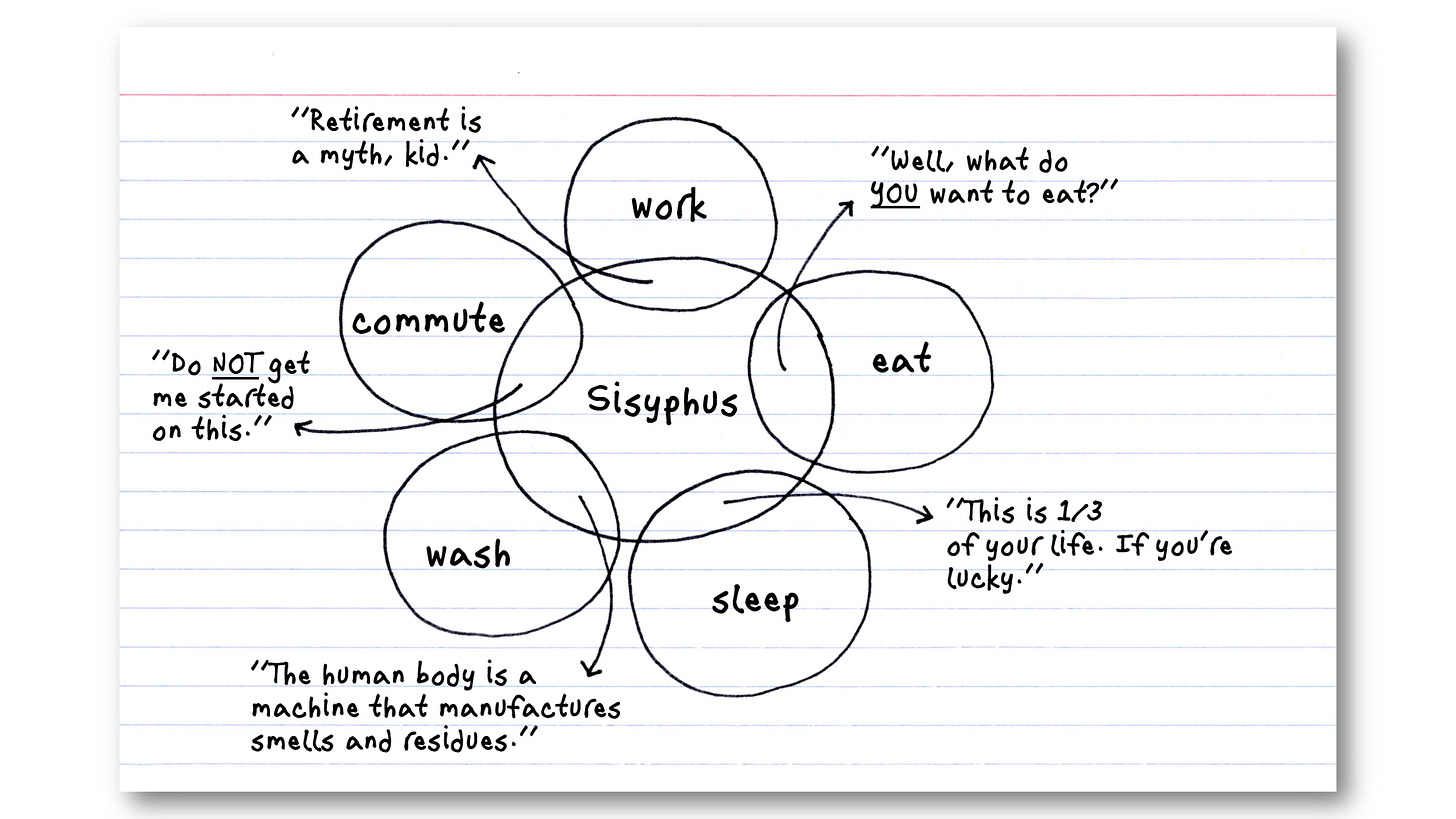 "Retirement is
a myth, kid."
work
"Well, what do
YOU want to eat?"
commute
eat
"Do NOT get
me started
on this."
Sisyphus
wash
sleep
"This is 1/3
of your life. If you're
lucky."
"The human body is a
machine that manufactures
smells and residues."